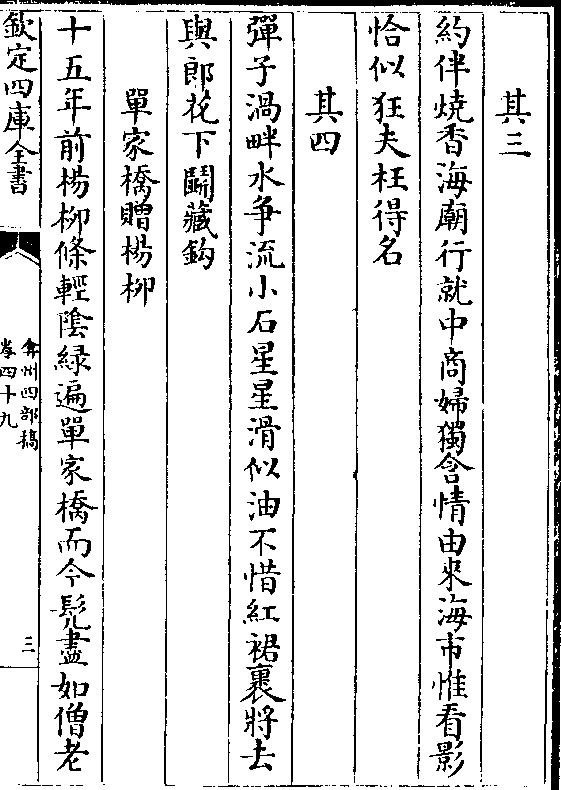 其三
約伴燒香海廟行就中商婦獨含情由來海市惟看影
恰似狂夫枉得名
其四
彈子渦畔水爭流小石星星滑似油不惜紅裙裹將去
與郎花下鬬藏鈎
單家橋贈楊柳
十五年前楊柳條輕陰緑遍單家橋而今髠盡如僧老
欽定四庫全書
弇州四部稿
卷四十九
三